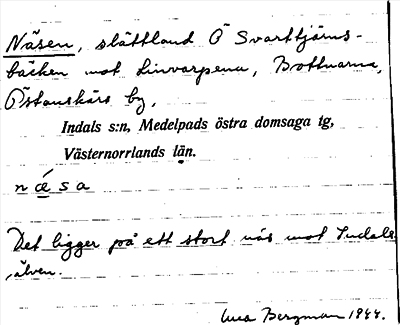 Näsen, slåttland Ö Svarttjärns-
bäcken mot Linvarpena, Bottnarna,
Östanskärs by.
Indals s:n, Medelpads östra domsaga tg,
Västernorrlands län.
n ǽ s a
Det ligger på ett stort näs mot Indals
älven.
Bergman 1944.